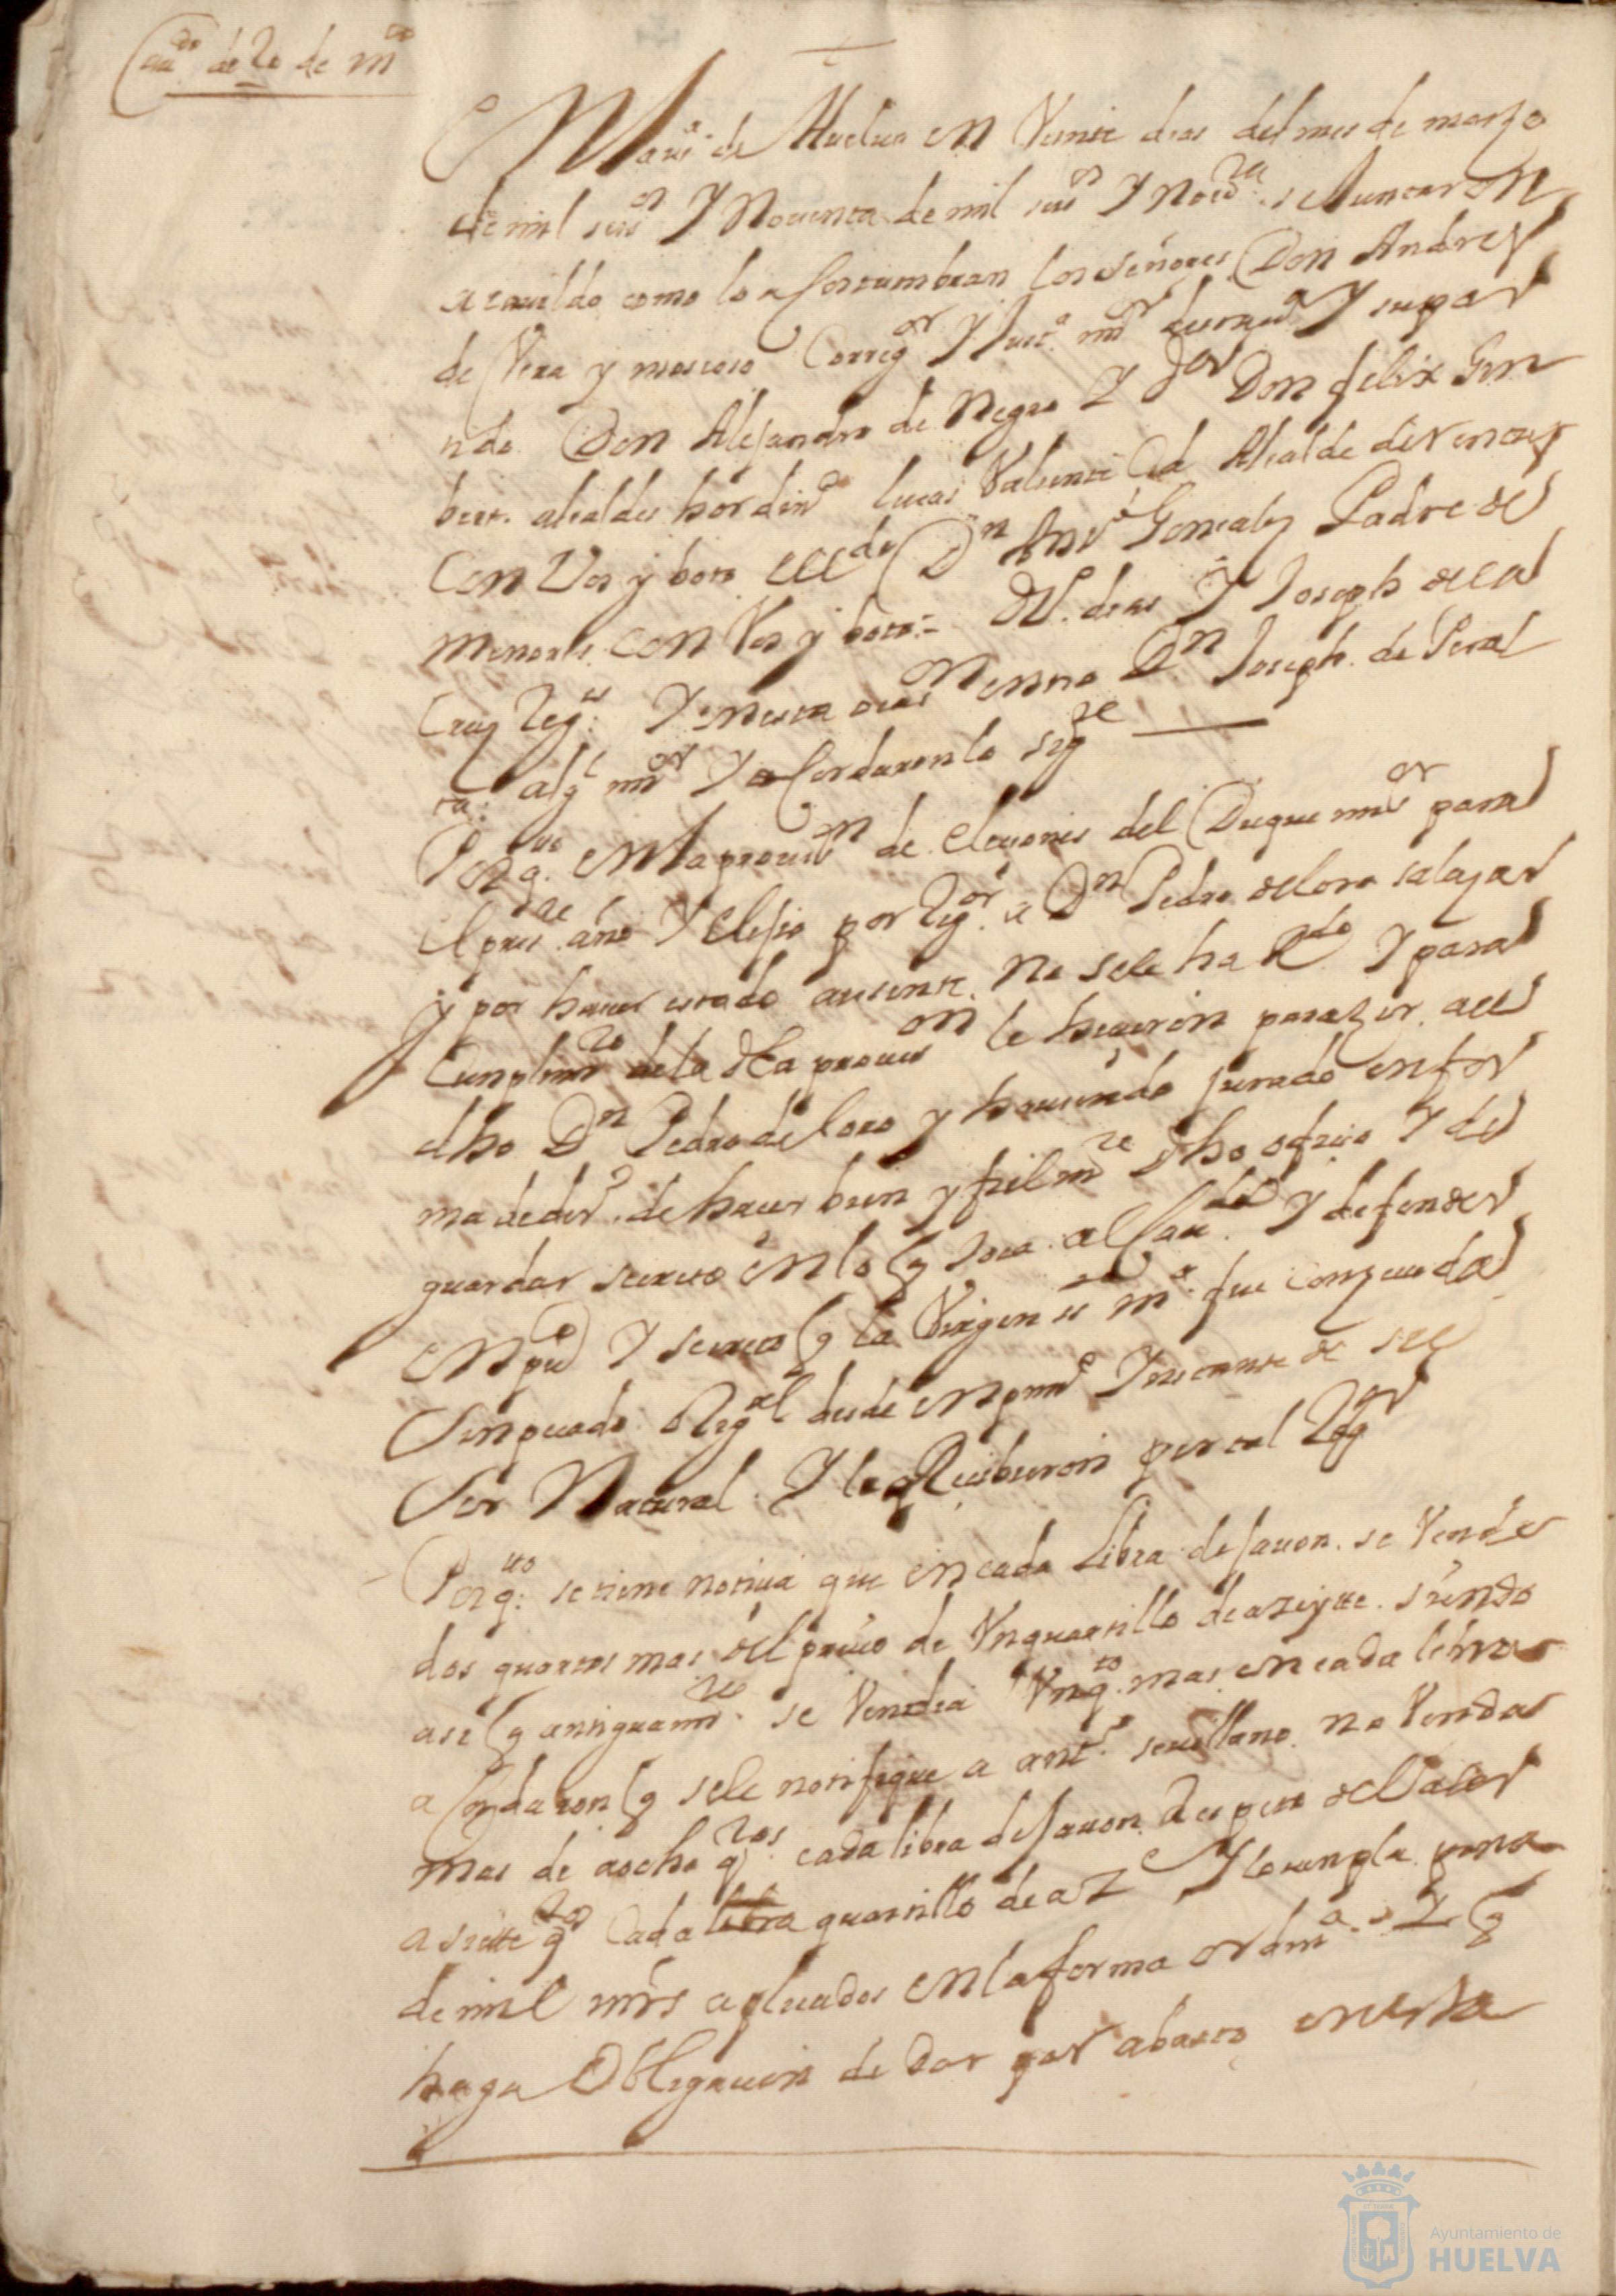 Cau.do de 20 de m.zo
En la Villa de Huelva en Veinte dias del mes de marzo
de mil seis.os Y Noventa de mil seis.os Y Nov.ta se Juntaron
a cauildo como lo acostumbran los señores Don Andres
de Vera y moscoso Correg.or Y Just.a m.or
Don Alejandro de Negro Y Don felix Gim
bert. alcaldes hordin.os lucas Valiente Alcalde de
Con Vos y boto Don Gonsales Padre de
Menores con Vos y boto = dias Y Joseph de la
Cruz Reg.es Y D.n Joseph de Peral
ta alg.l m.or Y acordaron lo sig.te
Porq.to en la prouis.on de elesiones del Duque mi s.or para
el pres.te año Y elijio por Reg.or a D.n Pedro de lora salazar
y por hauer estado ausente no se le ha R.do Y para
Cunplim.to de la dha prouis.on le hicieron parezer a el
dho D.n Pedro de lora y hauiendo jurado en for
ma de der.o de hacer bien y fielm.te dho ofizio Y de
guardar secreto en lo q toca al Cau.do Y defender
en pu.co Y secreto q la Virgen s.a m.a fue conzeuida
Sin pecado orig.al desde el prim.o Ynstante de su
Ser Natural Y le Resibieron por tal Reg.or
Porq.to se tiene noticia que en cada Libra de Jauon se Vende
dos quartos mas del precio de Vn quartillo de azeyte siendo
asi q antiguam.te se Vendia Vn q.to mas en cada libra
acordaron q se le notifique a ant.o seuillano no Venda
mas de a ocho q.tos cada libra de Jauon Respecto de Valer
a siette q.tos cada libra quartillo de az.e Y lo cunpla pena
de mill mrs aplicados en la forma ordin.a Y q
haga Obligacion de dar por abasto en esta
Ayuntamiento de
HUELVA